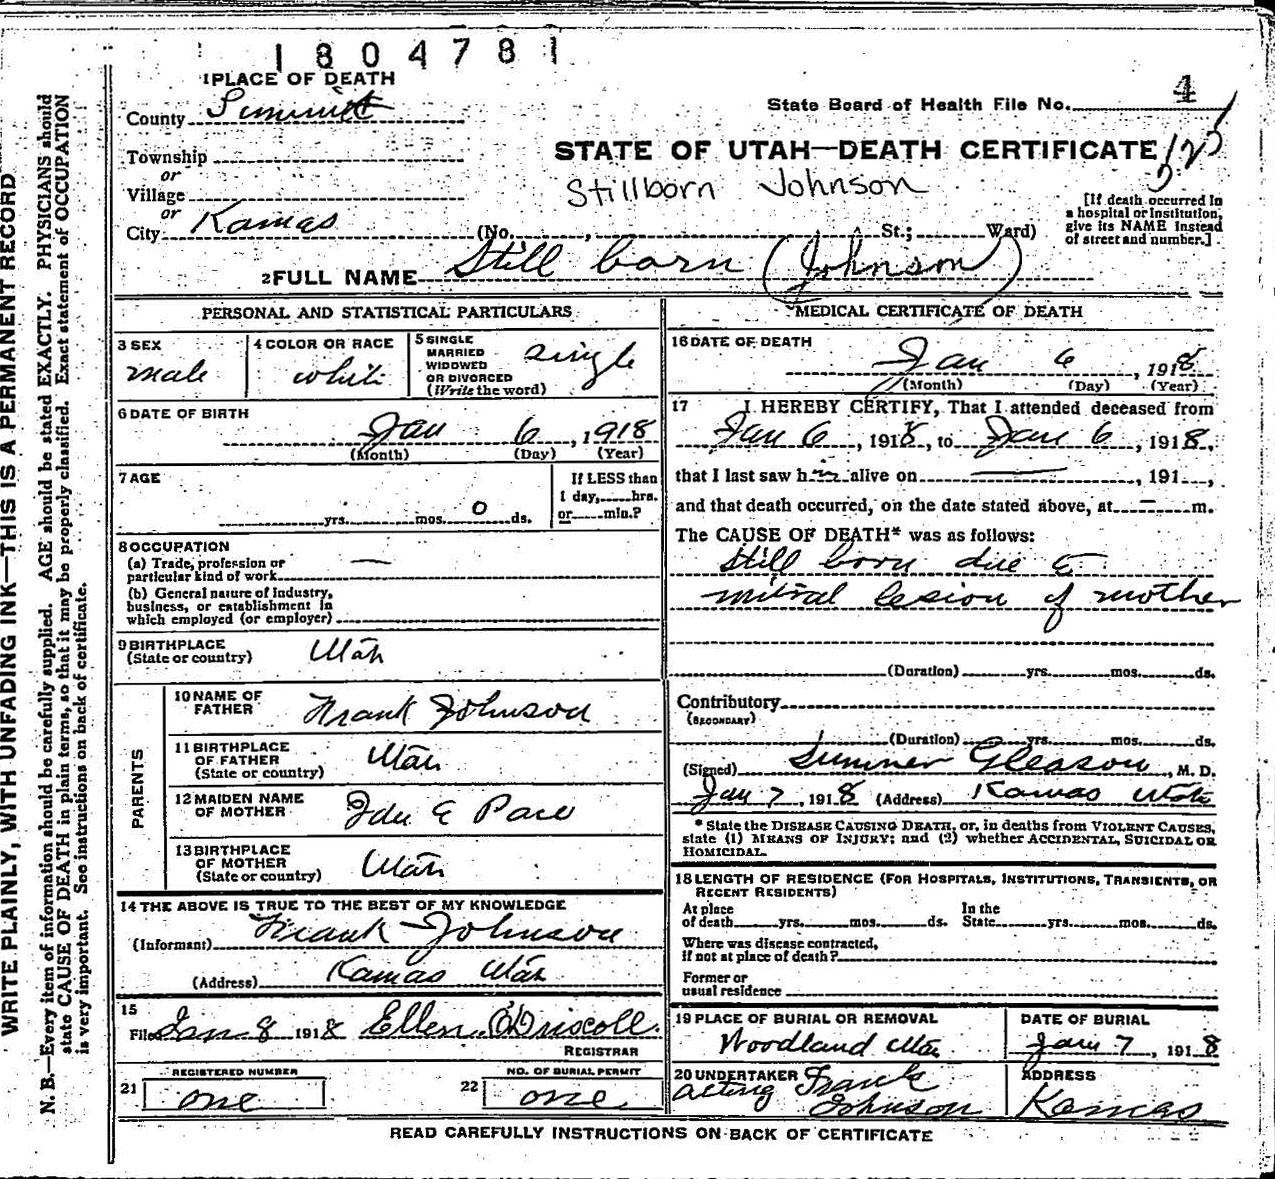 1804781
1 PLACE OF DEATH
County Summit
State Board of Health File No. 4
Township
or
STATE OF UTAH—DEATH CERTIFICATE
Village
Stillborn Johnson
or
City Kamas (No. , St.; Ward)
[If death occurred in
a hospital or institution,
give its NAME instead
of street and number.]
2 FULL NAME Still born (Johnson)
PERSONAL AND STATISTICAL PARTICULARS
3 SEX
male
4 COLOR OR RACE
white
5 SINGLE
MARRIED
WIDOWED
OR DIVORCED
(Write the word)
single
6 DATE OF BIRTH
Jan 6, 1918
(Month) (Day) (Year)
7 AGE
yrs. mos. 0 ds.
If LESS than
1 day, hrs.
or min.?
8 OCCUPATION
(a) Trade, profession or
particular kind of work —
(b) General nature of Industry,
business, or establishment in
which employed (or employer)
9 BIRTHPLACE
(State or country) Utah
PARENTS
10 NAME OF
FATHER Frank Johnson
11 BIRTHPLACE
OF FATHER
(State or country) Utah
12 MAIDEN NAME
OF MOTHER Ida E Pace
13 BIRTHPLACE
OF MOTHER
(State or country) Utah
14 THE ABOVE IS TRUE TO THE BEST OF MY KNOWLEDGE
(Informant) Frank Johnson
(Address) Kamas Utah
15
Filed Jan 8 1918 Ellen O'Driscoll
REGISTRAR
21 REGISTERED NUMBER
one
22 NO. OF BURIAL PERMIT
one
MEDICAL CERTIFICATE OF DEATH
16 DATE OF DEATH
Jan 6, 1918
(Month) (Day) (Year)
17 I HEREBY CERTIFY, That I attended deceased from
Jan 6, 1918, to Jan 6, 1918,
that I last saw him alive on —, 191 ,
and that death occurred, on the date stated above, at — m.
The CAUSE OF DEATH* was as follows:
Still born due
mitral lesion of mother
(Duration) yrs. mos. ds.
Contributory
(SECONDARY)
(Duration) yrs. mos. ds.
(Signed) Sumner Gleason, M. D.
Jan 7, 1918 (Address) Kamas Utah
* State the DISEASE CAUSING DEATH, or, in deaths from VIOLENT CAUSES,
state (1) MEANS OF INJURY; and (2) whether ACCIDENTAL, SUICIDAL OR
HOMICIDAL.
18 LENGTH OF RESIDENCE (FOR HOSPITALS, INSTITUTIONS, TRANSIENTS, OR
RECENT RESIDENTS)
At place
of death yrs. mos. ds.
In the
State yrs. mos. ds.
Where was disease contracted,
if not at place of death?
Former or
usual residence
19 PLACE OF BURIAL OR REMOVAL
Woodland Utah
DATE OF BURIAL
Jan 7, 1918
20 UNDERTAKER
acting Frank
Johnson
ADDRESS
Kamas
READ CAREFULLY INSTRUCTIONS ON BACK OF CERTIFICATE
WRITE PLAINLY, WITH UNFADING INK—THIS IS A PERMANENT RECORD
N. B.—Every item of information should be carefully supplied. AGE should be stated EXACTLY. PHYSICIANS should
state CAUSE OF DEATH in plain terms, so that it may be properly classified. Exact statement of OCCUPATION
is very important. See instructions on back of certificate.